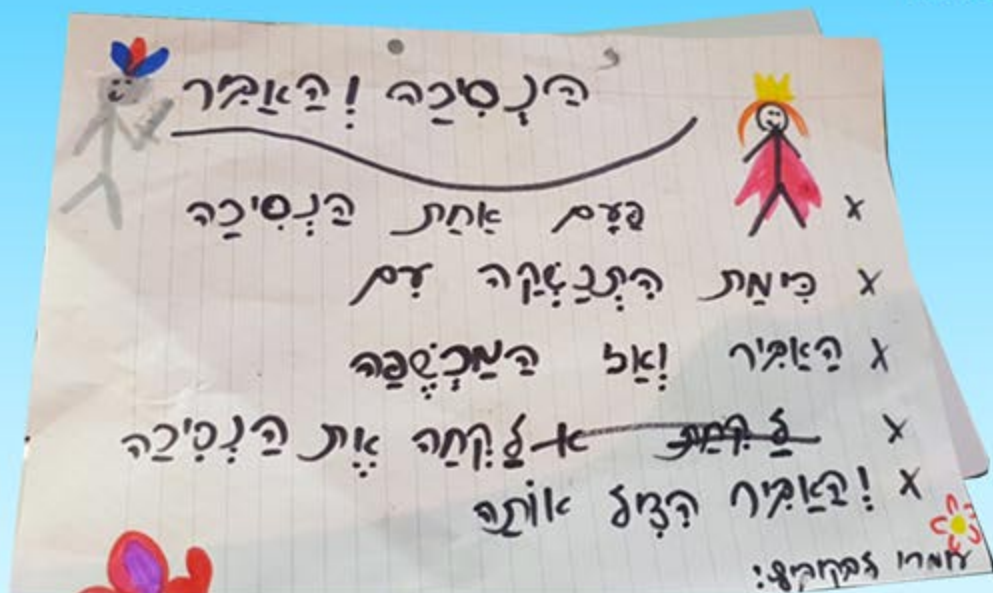 הַנְסִיכַה וְהַאַבִּיר
x פַּעָם אַחַת הַנְסִיכַה
x כִּימַת הִתְנַשְׁקַה עִם
x הַאַבִּיר וְאַז הַמַכְשֵׁפַה
x לַקְחַה אֶת הַנְסִיכַה
x וְהַאַבִּיר הִצִיל אוֹתַה